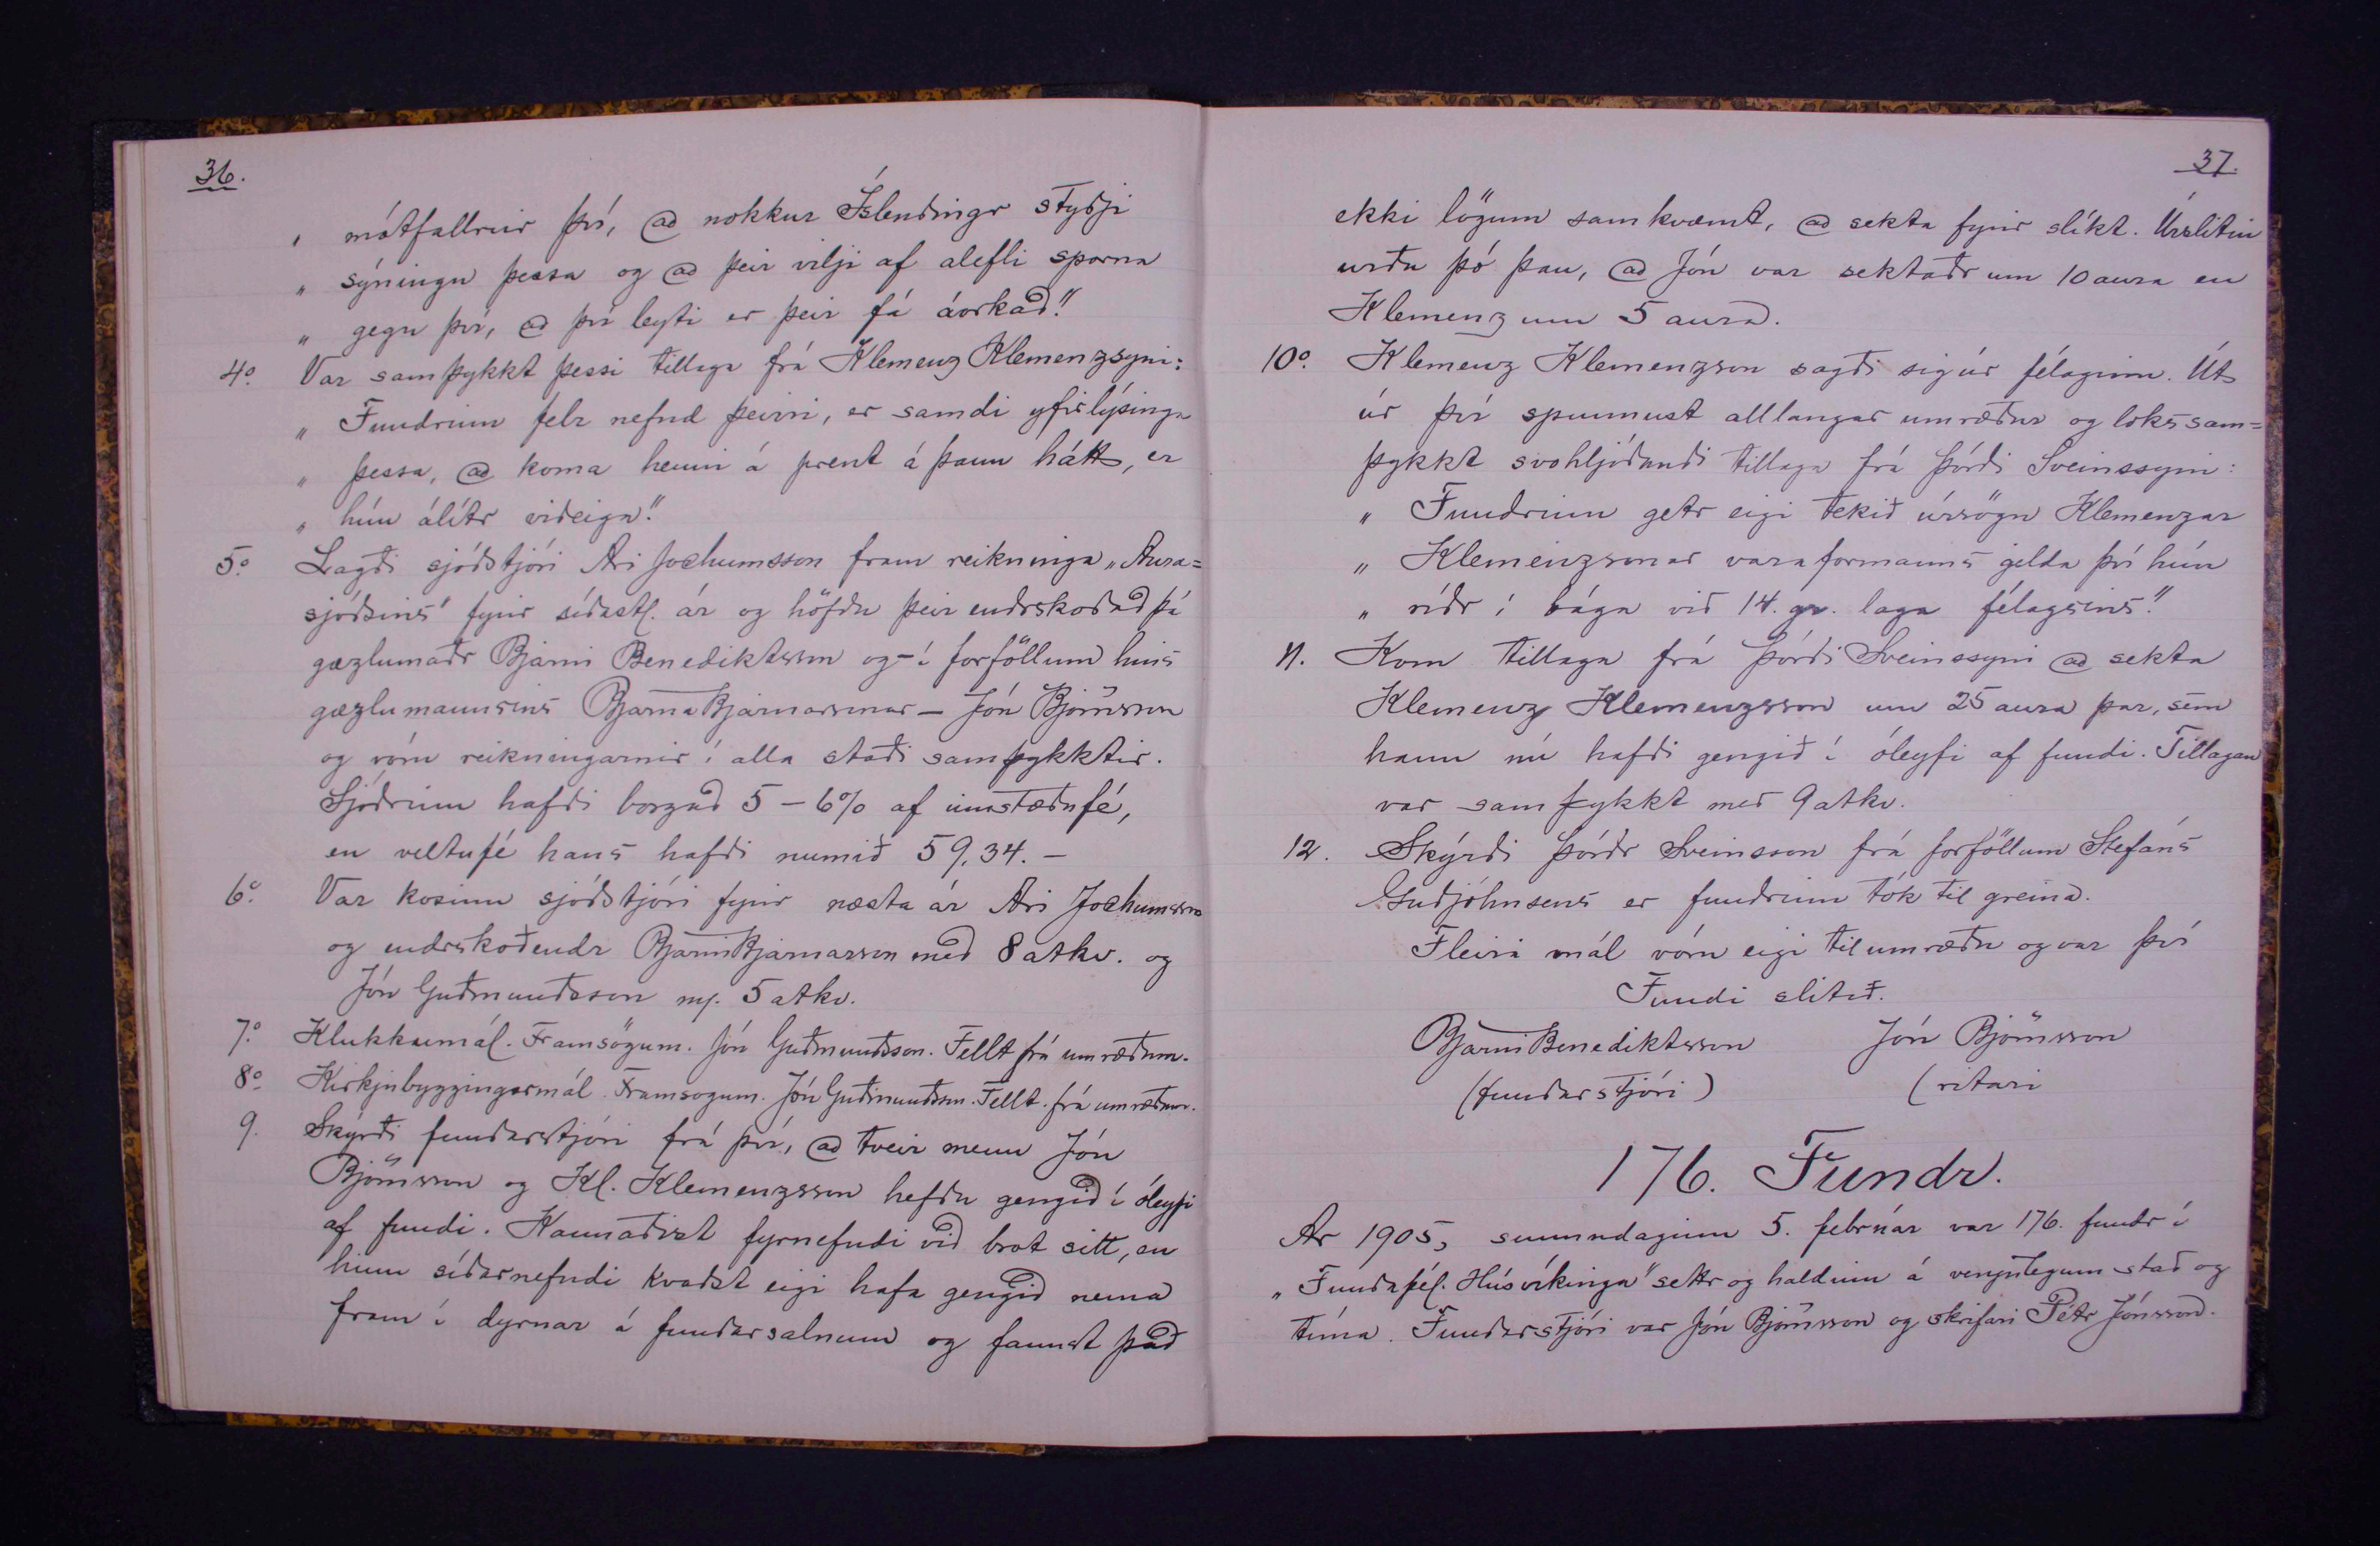 36.
„ mótfallnir því, að nokkur Íslendingr styðji
„ sýningu þessa og að þeir vilji af alefli sporna
„ gegn því, að því leyti er þeir fá áorkað."
4º. Var samþykkt þessi tillaga frá Klemenz Klemenzsyni:
„ Fundrinn felr nefnd þeirri, er samdi yfirlýsingu
„ þessa, að koma henni á prent á þann hátt, er
„ hún álítr viðeiga."
5º. Lagði sjóðstjóri Ari Jochumsson fram reikninga „Aura=
sjóðsins" fyrir síðastl. ár og höfðu þeir endrskoðað þá
gæzlumaðr Bjarni Benediktsson og - í forföllum hins
gæzlumannsins Bjarna Bjarnarsonar - Jón Björnsson
og vóru reikningarnir í alla staði samþykktir.
Sjóðrinn hafði borgað 5 - 6% af innstæðufé,
en veltufé hans hafði numið 59,34. -
6º. Var kosinn sjóðstjóri fyrir næsta ár Ari Jochumsson
og endrskoðendr Bjarni Bjarnarson með 8 atkv. og
Jón Guðmundsson m/. 5 atkv.
7º. Klukkumál. Framsögum. Jón Guðmundsson. Fellt frá umræðum.
8º. Kirkjubyggingarmál. Framsögum. Jón Guðmundsson. Fellt. frá umræðum.
9. Skýrði fundarstjóri frá því, að tveir menn Jón
Björnsson og Kl. Klemenzsson hefðu gengið í óleyfi
af fundi. Kannaðist fyrnefndi við brot sitt, en
hinn síðarnefndi kvaðst eigi hafa gengið nema
fram í dyrnar á fundarsalnum og fannst það
37.
ekki lögum samkvæmt, að sekta fyrir slíkt. Úrslitin
urðu þó þau, að Jón var sektaðr um 10 aura en
Klemenz um 5 aura.
10º. Klemenz Klemenzson sagði sig úr félaginu. Út
úr því spunnust alllangar umræður og loks sam=
þykkt svohljóðandi tillaga frá Þórði Sveinssyni:
„ Fundrinn getr eigi tekið úrsögn Klemenzar
„ Klemenzsonar varaformanns gilda því hún
„ ríðr í bága við 14. gr. laga félagsins."
11. Kom tillaga frá Þórði Sveinssyni að sekta
Klemenz Klemenzsson um 25 aura þar, sem
hann nú hafði gengið í óleyfi af fundi. Tillagan
var samþykkt með 9 atkv.
12. Skýrði Þórðr Sveinsson frá forföllum Stefáns
Guðjóhnsens er fundrinn tók til greina.
Fleiri mál vóru eigi til umræðu og var því
Fundi slitið.
Bjarni Benediktsson Jón Björnsson
(fundarstjóri) (ritari
176. Fundr.
Ar 1905, sunnudaginn 5. febrúar var 176. fundr í
„Fundafél. Húsvíkinga" settr og haldinn á venjulegum stað og
tíma. Fundarstjóri var Jón Björnsson og skrifari Pétr Jónsson.